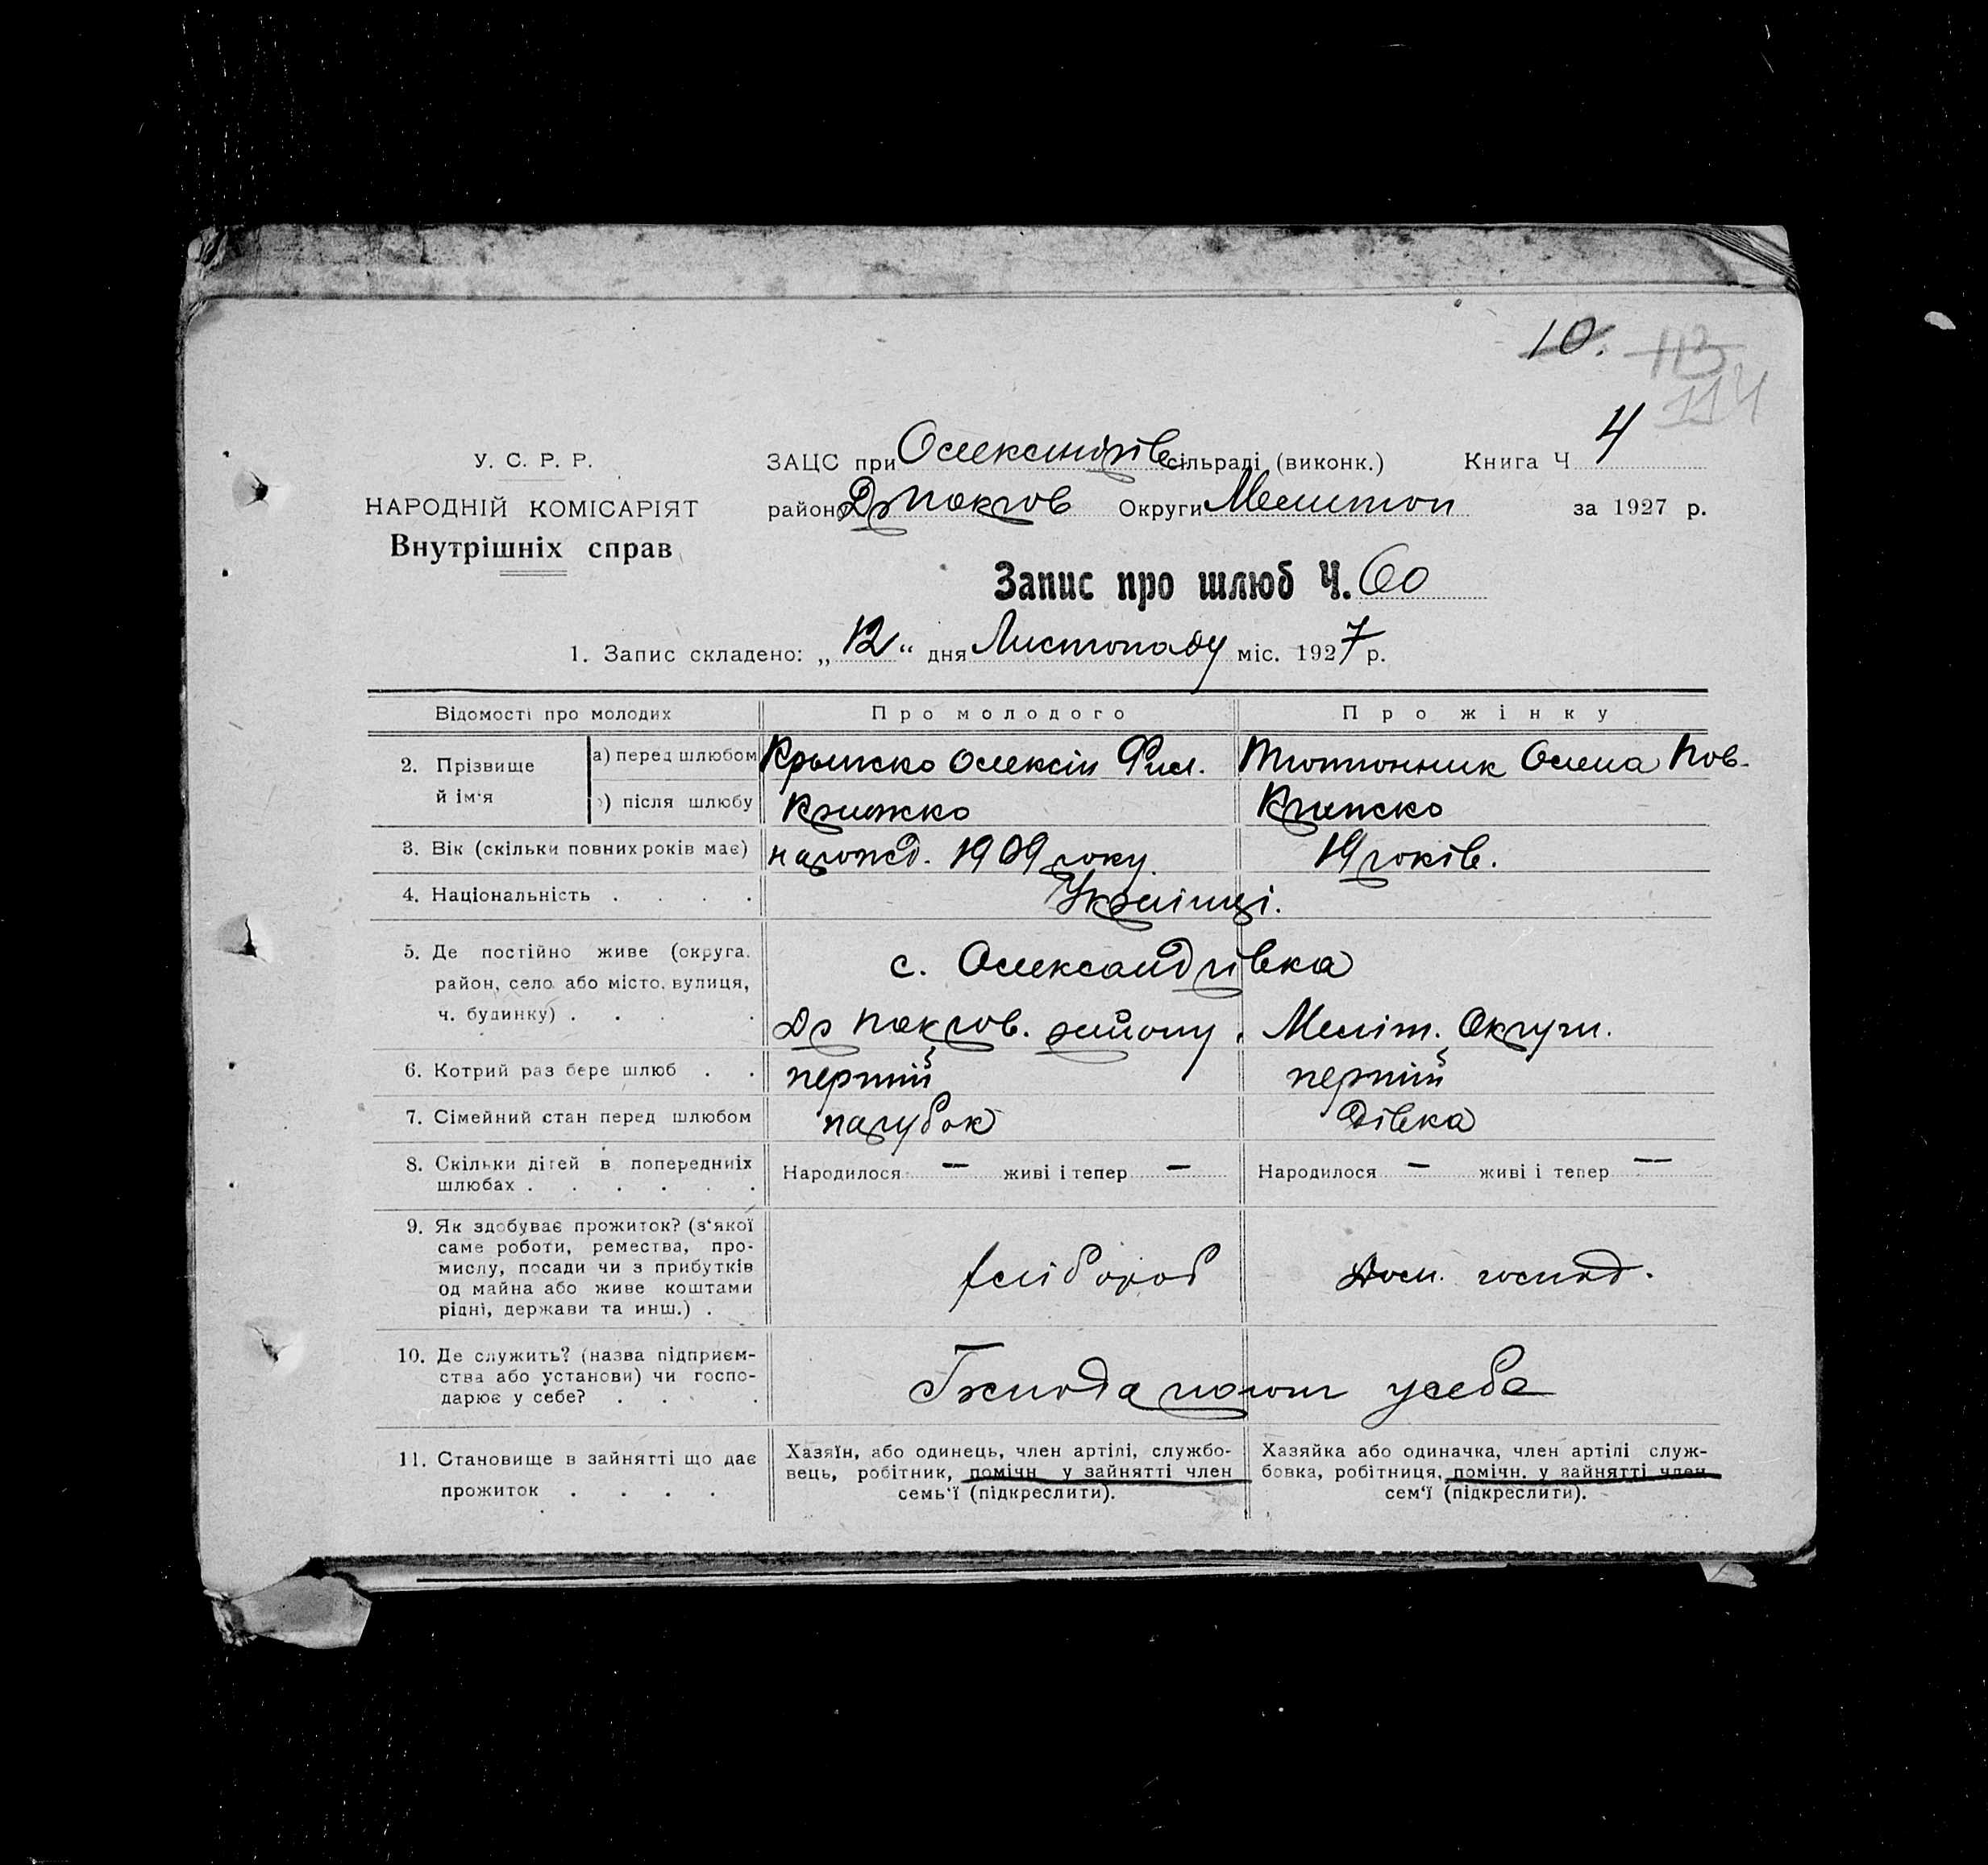 10.
113
114
У. С. Р. Р.
НАРОДНІЙ КОМІСАРІЯТ
Внутрішніх справ
ЗАЦС при Олександрів сільраді (виконк.) Книга Ч 4
район Др Покров Округи Мелитоп за 1927 р.
Запис про шлюб Ч. 60
1. Запис складено: „12“ дня Листопаду міс. 1927 р.
Відомості про молодих Про молодого Про жінку
2. Прізвище й ім'я а) перед шлюбом Олексій Фил. Тютюнник Олена Пов.
) після шлюбу Крижко Крижко
3. Вік (скільки повних років має) нарожд. 1909 року. 19 років.
4. Національність . . . . Українці.
5. Де постійно живе (округа, с. Олександрівка
район, село або місто, вулиця,
ч. будинку) . . . . Др Покров. району, Меліт. Округи.
6. Котрий раз бере шлюб . . перший перший
7. Сімейний стан перед шлюбом парубок Дівка
8. Скільки дітей в попередніх Народилося — живі і тепер — Народилося — живі і тепер —
шлюбах . . . . . .
9. Як здобуває прожиток? (з'якої
саме роботи, ремества, про-
мислу, посади чи з прибутків хлібороб Дом. господ.
од майна або живе коштами
рідні, держави та инш.) .
10. Де служить? (назва підприєм-
ства або установи) чи госпо- усебе
дарює у себе? . . .
11. Становище в зайнятті що дає Хазяїн, або одинець, член артілі, службо- Хазяйка або одиначка, член артілі служ-
прожиток . . . . вець, робітник, помічн. у зайнятті член бовка, робітниця, помічн. у зайнятті член
семь'ї (підкреслити). сем'ї (підкреслити).